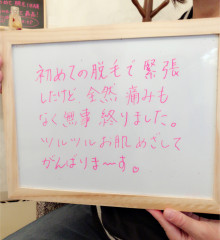 初めての脱毛で緊張
したけど全然痛みも
なく無事終りました。
ツルツルお肌めざして
がんばりま〜す。